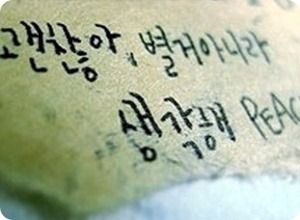 괜찮아, 별거아니라
생각해 PEAC